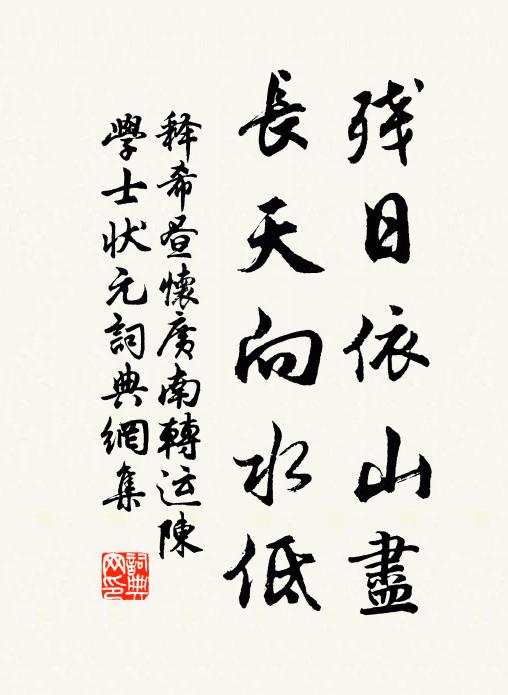 残日依山盡
長天向水低
释希昼懷廣南轉运陳
學士状元詞典網集
詞典网印